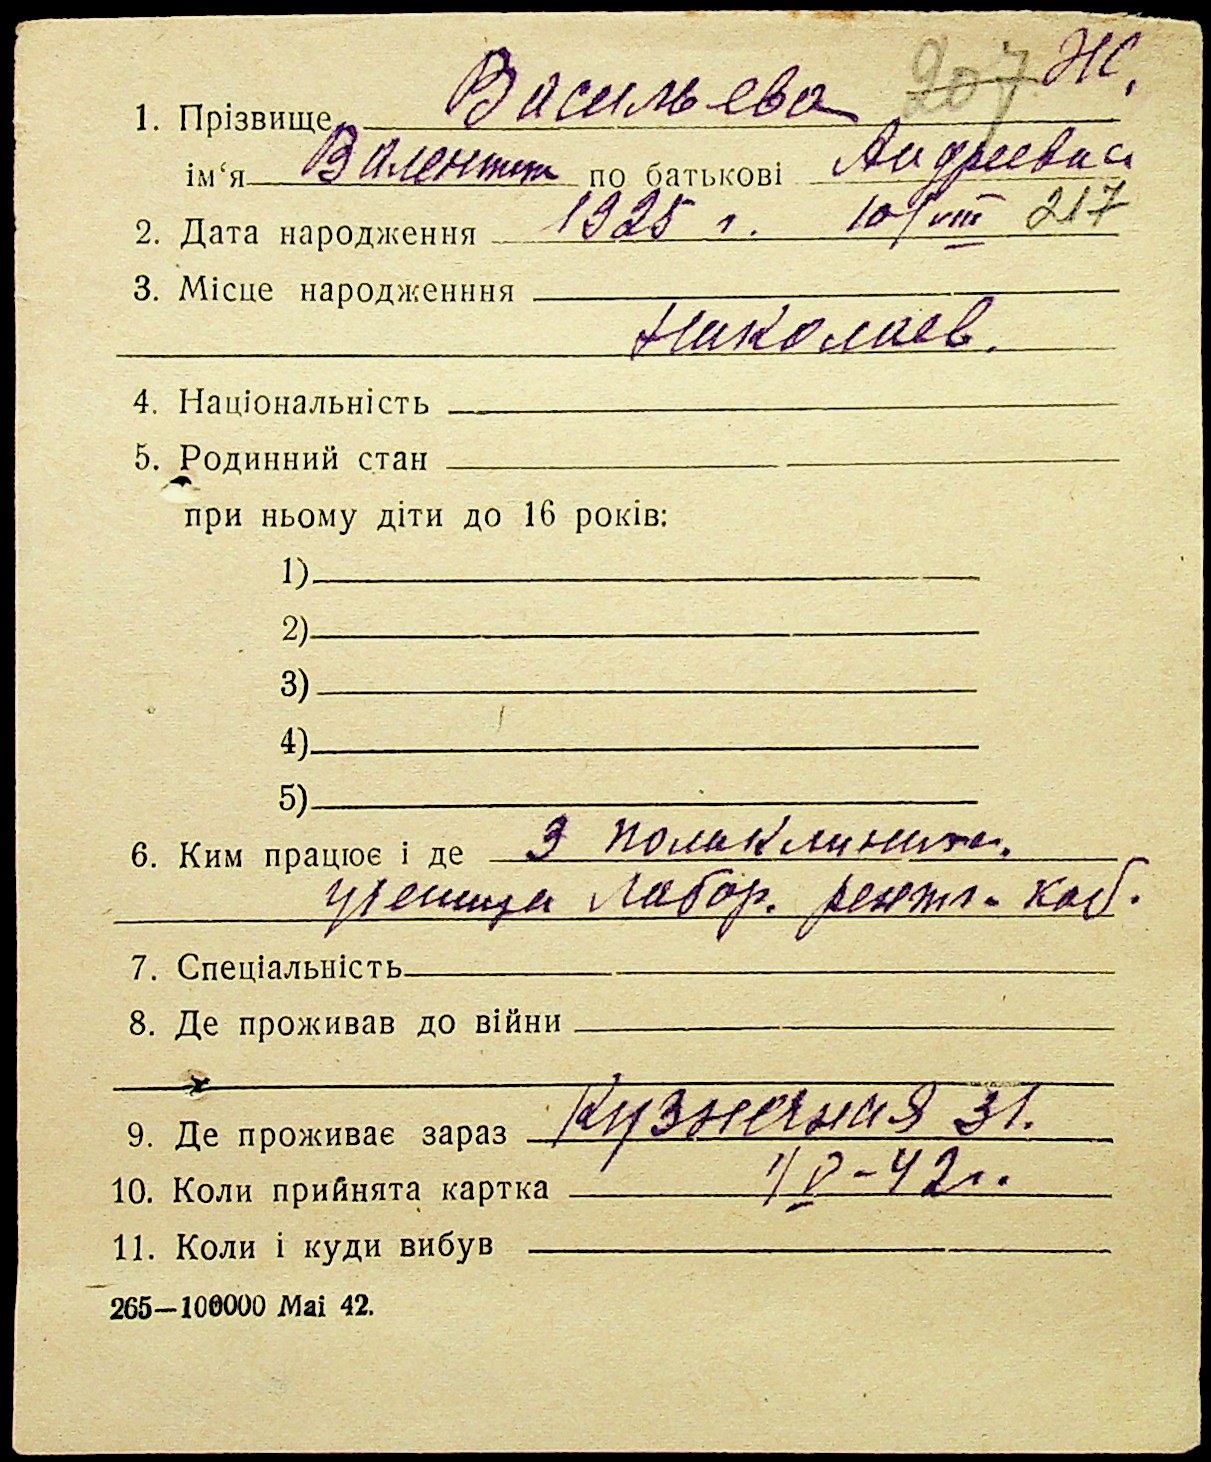 207 Ж.
1. Прізвище Васильева
ім‘я Валентина по батькові Андреевна
2. Дата народження 1925 г. 10/VIII 217
3. Місце народженння
Николаев.
4. Національність
5. Родинний стан
при ньому діти до 16 років:
1)
2)
3)
4)
5)
6. Ким працює і де 3 поликлиника.
ученица лабор. рентг. каб.
7. Спеціальність
8. Де проживав до війни
9. Де проживає зараз Кузнечная 31.
10. Коли прийнята картка 42 г.
11. Коли і куди вибув
265—100000 Маі 42.